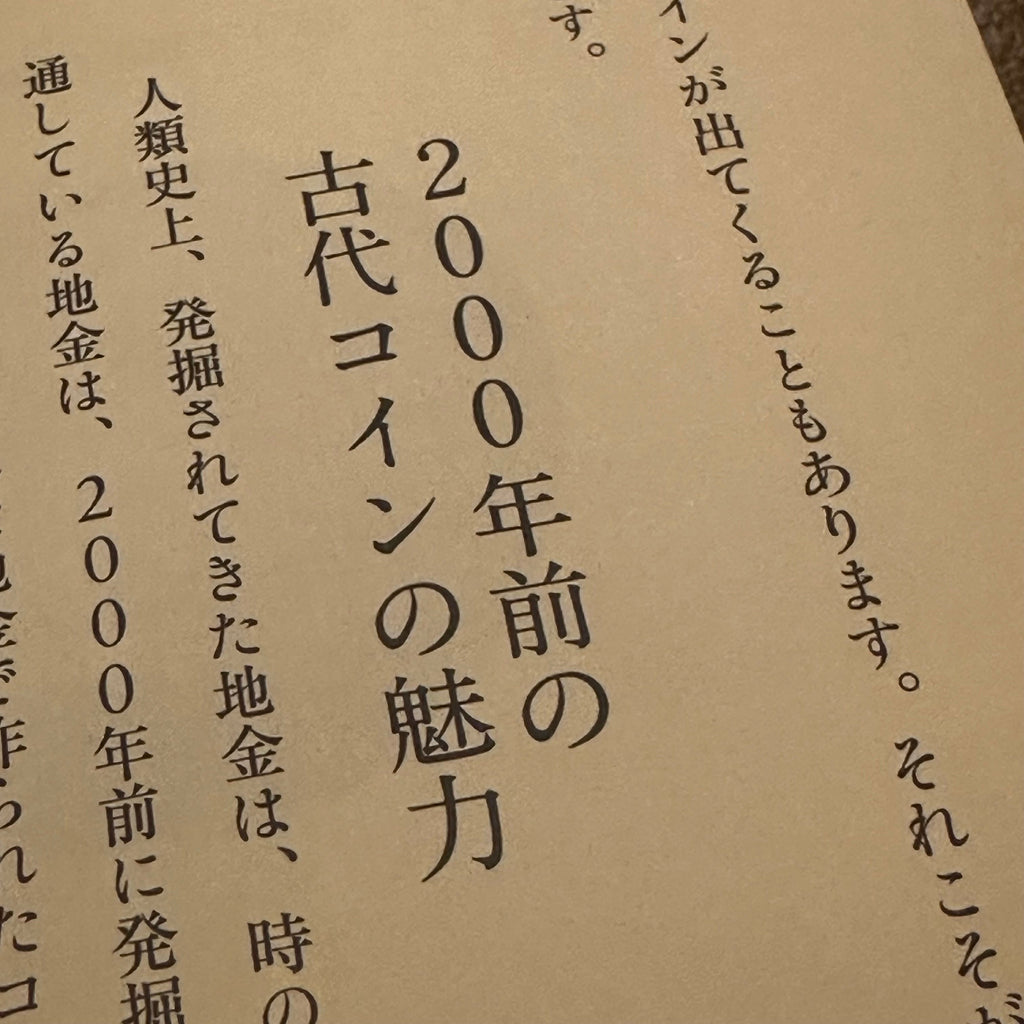 インが出てくることもあります。それこそが
す。
２０００年前の
古代コインの魅力
人類史上、発掘されてきた地金は、時の
通している地金は、２０００年前に発掘
地金で作られたコ